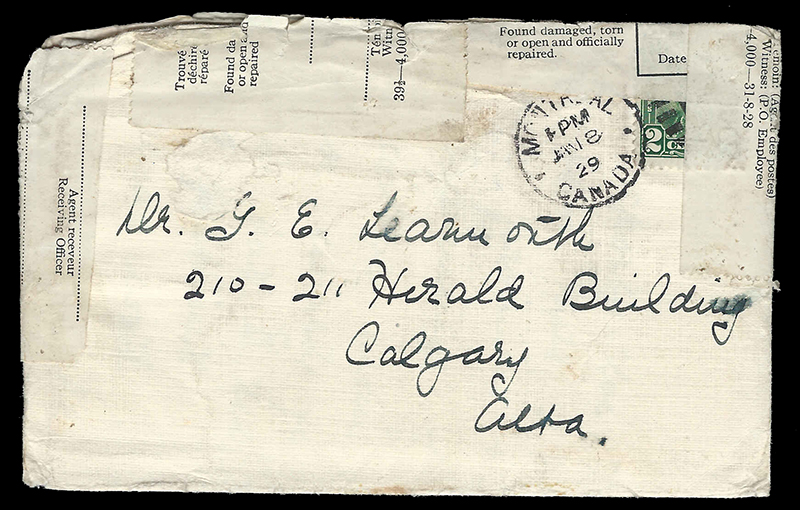 Trouvé
déchiré
réparé
Found da
or open and
repaired
Tén
Witn
39½—4,000
Found damaged, torn
or open and officially
repaired.
Date
Témoin: (Agent des postes)
Witness: (P.O. Employee)
4,000—31-8-28
MONTREAL
1 PM
JAN 8
29
CANADA
2
Agent receveur
Receiving Officer
Dr. G. E. Learmonth
210 - 211 Herald Building
Calgary
Alta.